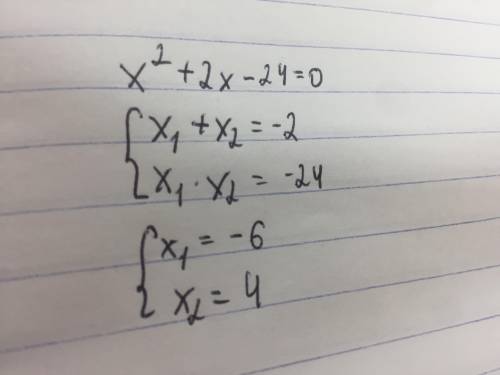 x² + 2x - 24 = 0
{ x₁ + x₂ = -2
x₁ · x₂ = -24
{ x₁ = -6
x₂ = 4